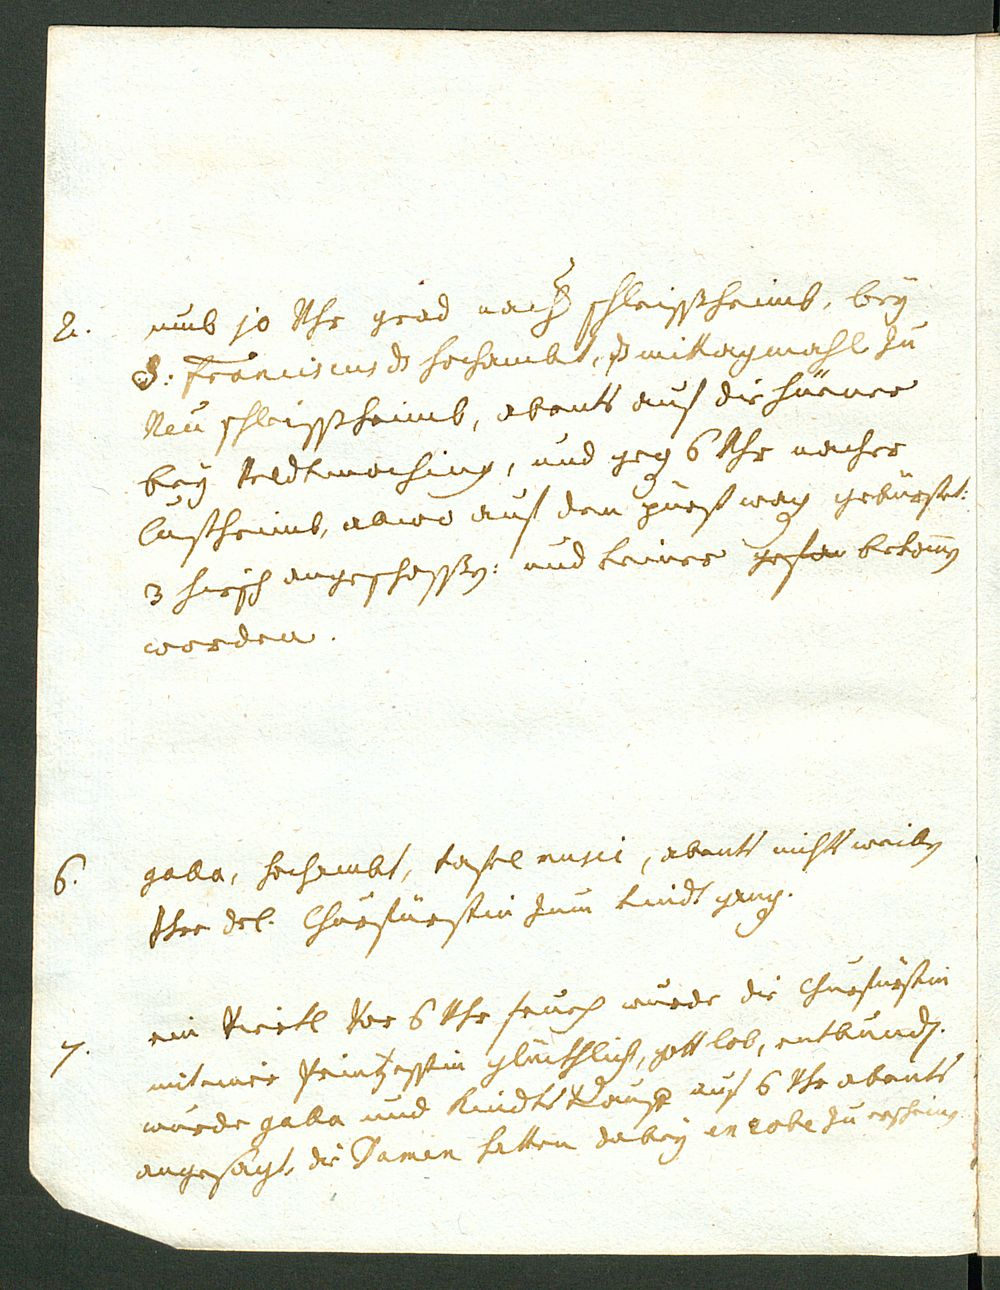 2. umb jo Uhr grad nacher schleissheimb, bey
S: Franciscus ds hochambt, ds mittagmahl zu
Neu schleissheimb, abents auf die hüener
bey Veldtmoching, und geg 6 Uhr nacher
Lustheimb, alwo auf dem pürstweg gebürstet:
3 hirsch angeschossen: und keiner bekomen
worden.
6. gala, hochambt, tafel music, abents nichts weilen
Ihre del. Churfürstin zum kindt gang.
7. ein Viertl Vor 6 Uhr frueh wurde die Churfürstin
mit einer Printzessin glückhlich, gott lob, entbunden.
wurde gala und Kindts Tauf auf 6 Uhr abents
angesagt, die Damen hatten dabey en robe zu erscheinen.